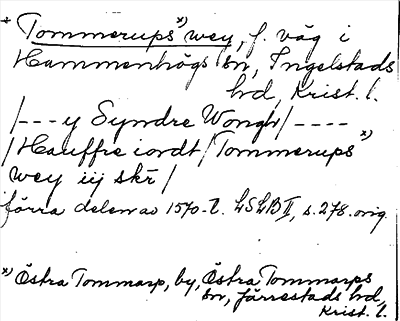 * Tommerups*) wey, f. väg i
Hammenhögs sn, Ingelstads
hd, Krist. l.
/--- y Syndre Wongh/----
/Hauffre iordt/Tommerups*)
wey iij skr/
förra delen av 1570-t. LSLB II, s. 278. orig.
*) Östra Tommarp, by, Östra Tommarps
sn, Järrestads hd,
Krist. l.